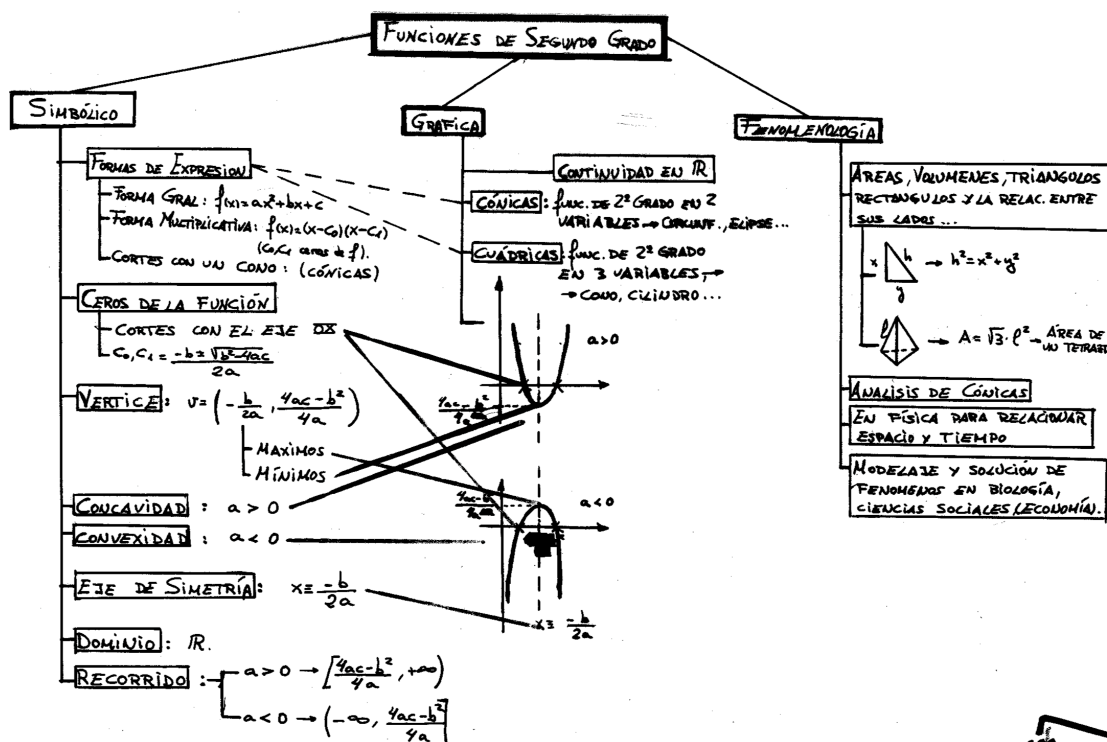 FUNCIONES DE SEGUNDO GRADO
SIMBÓLICO
FORMAS DE EXPRESION
FORMA GRAL: f(x)=ax²+bx+c
FORMA MULTIPLICATIVA: f(x)=(x-C₀)(x-C₁)
(C₀,C₁ ceros de f).
CORTES CON UN CONO: (CÓNICAS)
CEROS DE LA FUNCIÓN
CORTES CON EL EJE OX
C₀, C₁ = (-b ± √(b²-4ac))/2a
VERTICE: v = (-b/2a, (4ac-b²)/4a)
MAXIMOS
MÍNIMOS
CONCAVIDAD: a > 0
CONVEXIDAD: a < 0
EJE DE SIMETRÍA: x ≡ -b/2a
DOMINIO: ℝ.
RECORRIDO:
a > 0 → [(4ac-b²)/4a, +∞)
a < 0 → (-∞, (4ac-b²)/4a]
GRAFICA
CONTINUIDAD EN ℝ
CÓNICAS: func. DE 2º GRADO EN 2
VARIABLES → CIRCUNF., ELIPSE...
CUÁDRICAS: func. DE 2º GRADO
EN 3 VARIABLES, →
→ CONO, CILINDRO...
a>0
(4ac-b²)/4a
a<0
x ≡ -b/2a
FENOMENOLOGÍA
AREAS, VOLUMENES, TRIANGULOS
RECTANGULOS Y LA RELAC. ENTRE
SUS LADOS...
x h → h²=x²+y²
y
l → A = √3·l² → ÁREA DE
UN
ANALISIS DE CÓNICAS
EN FÍSICA PARA RELACIONAR
ESPACIO Y TIEMPO
MODELAJE Y SOLUCIÓN DE
FENOMENOS EN BIOLOGÍA,
CIENCIAS SOCIALES (ECONOMÍA).